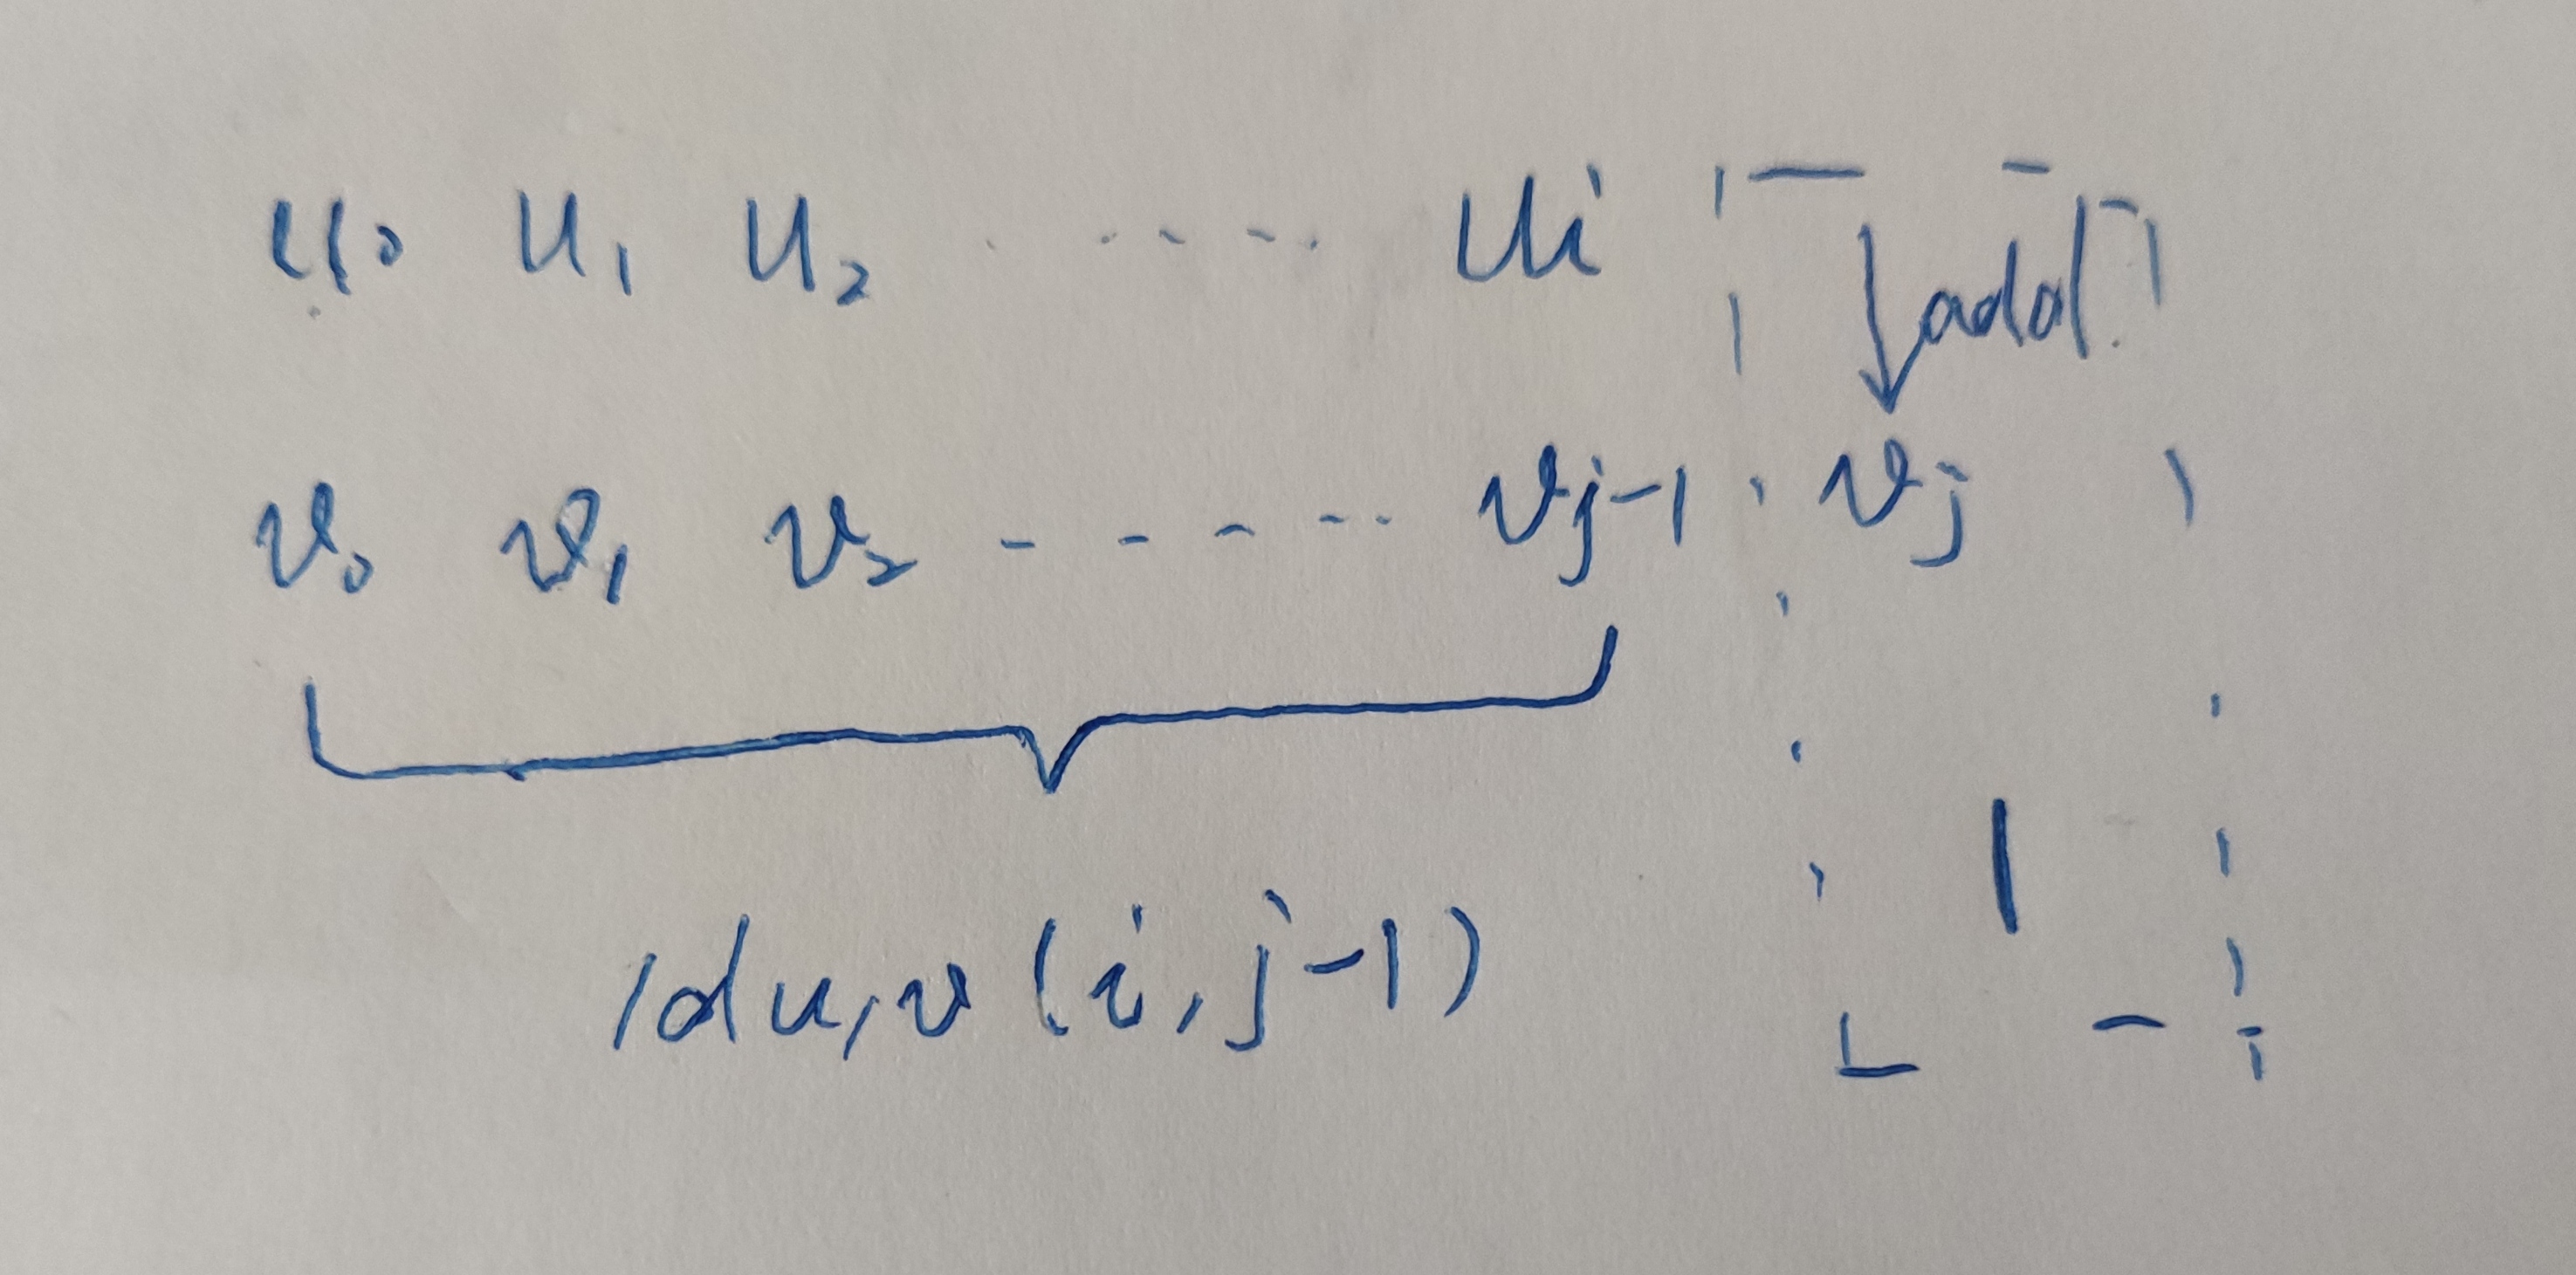 u₀ u₁ u₂ ····· ui add
v₀ v₁ v₂ ----- vj-1 vj
1
ldu,v (i, j-1)